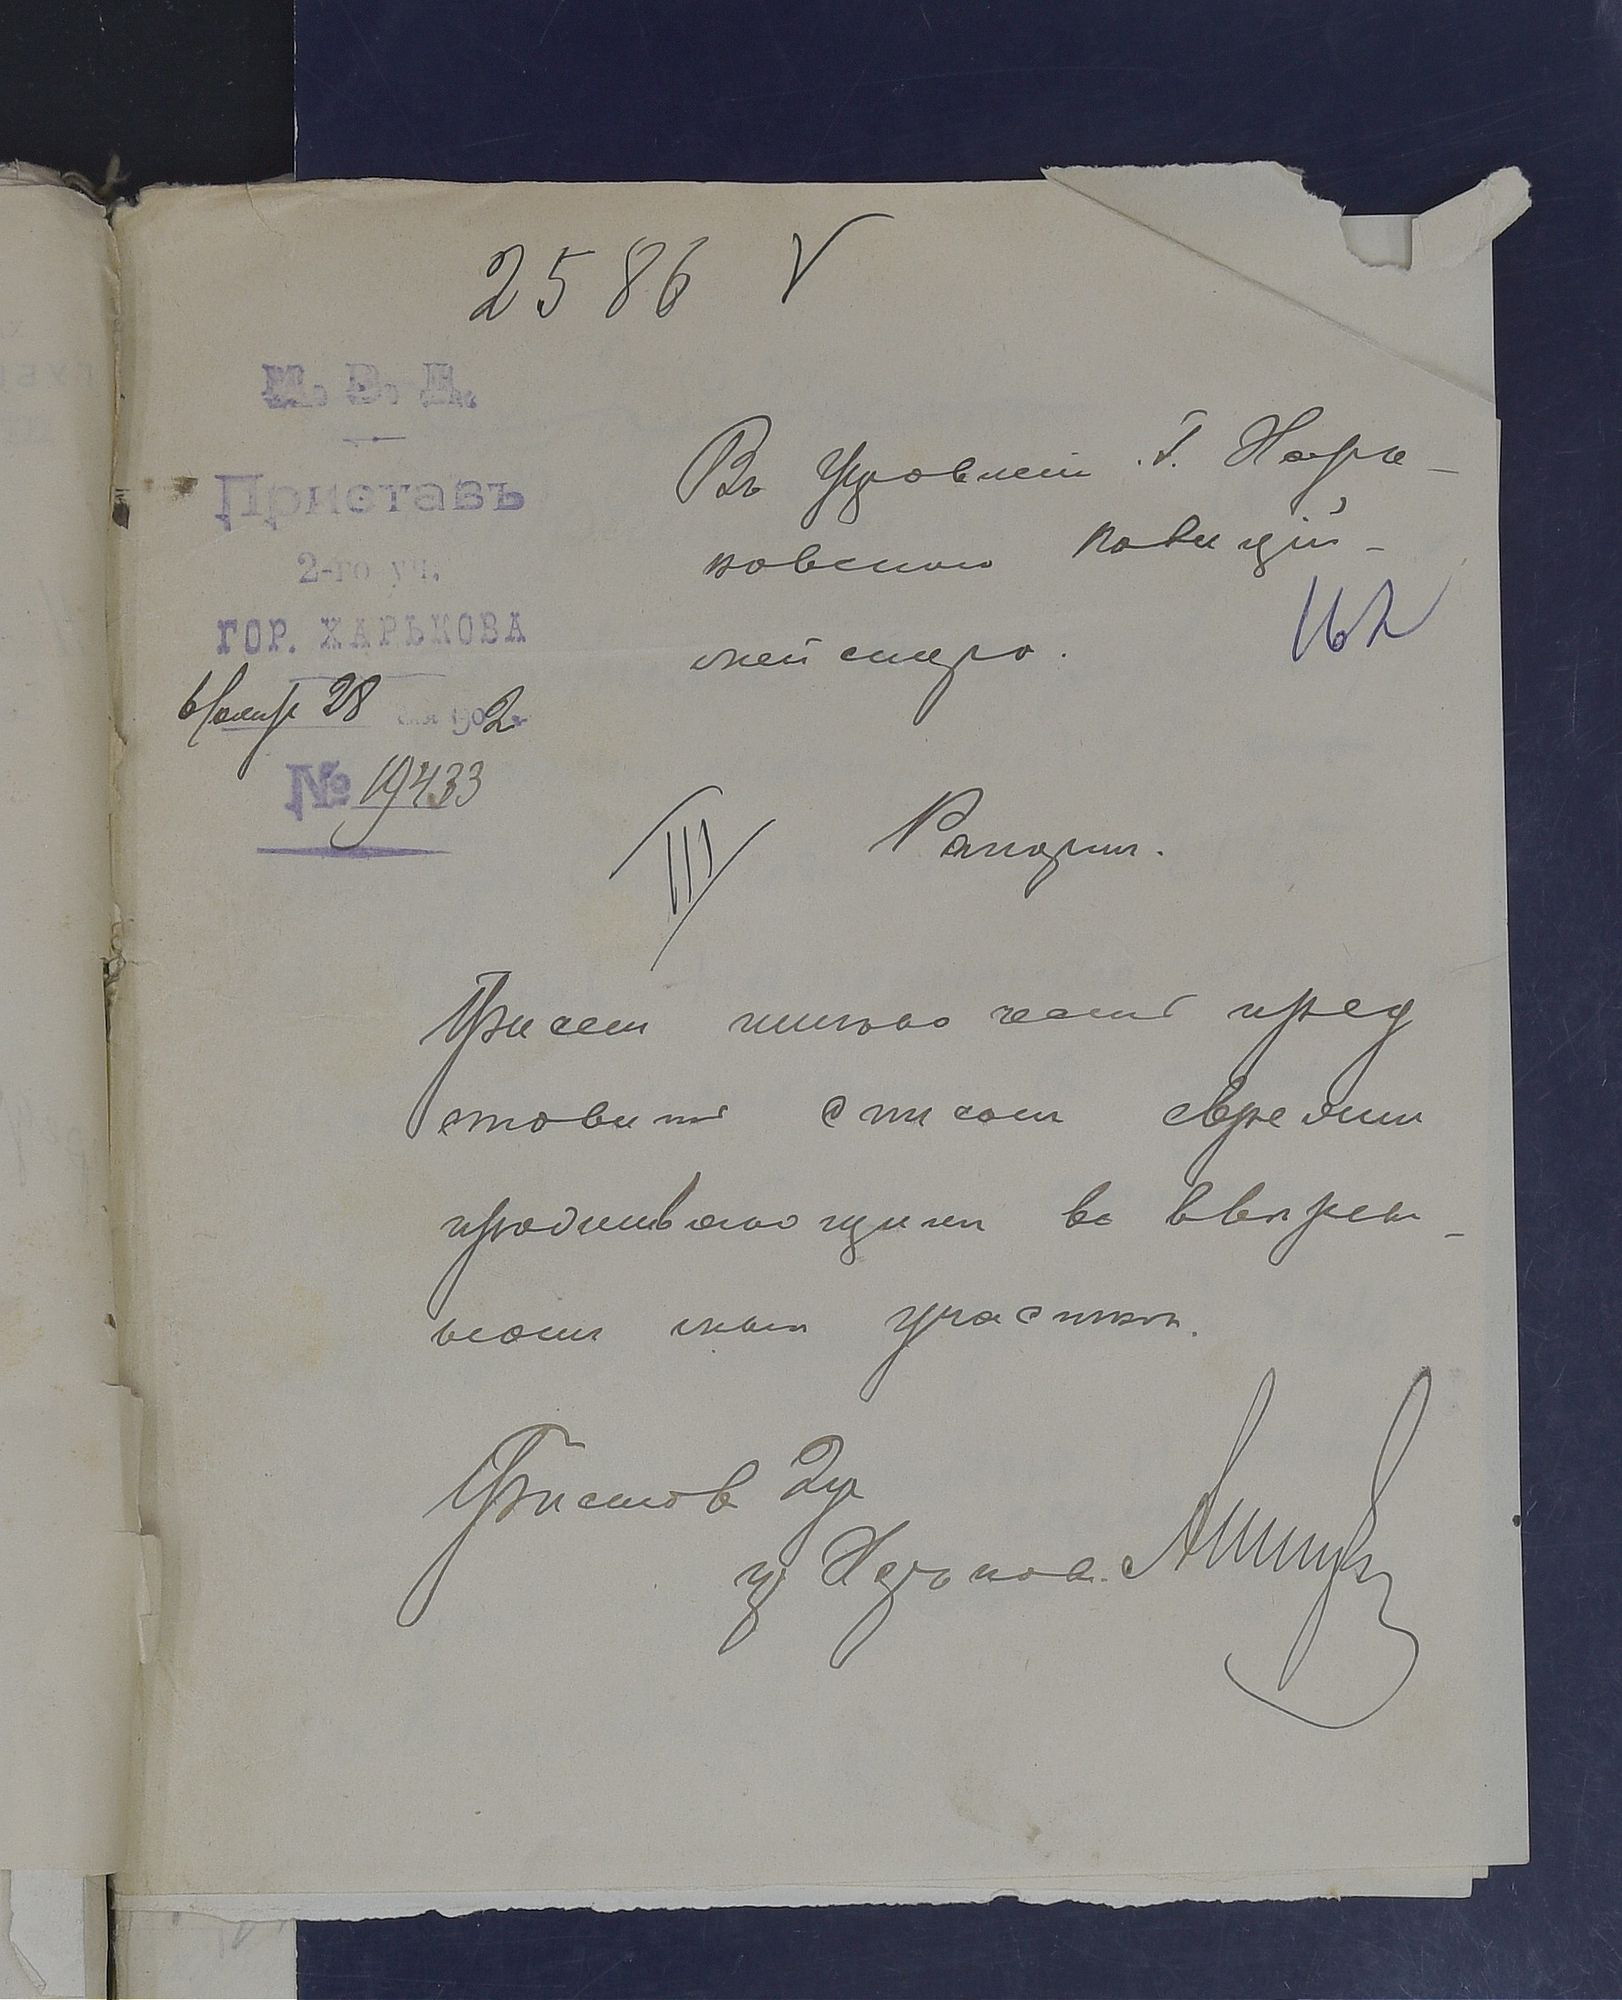 2586 V
М. В. Д.
Приставъ
2-го уч.
ГОР. ХАРЬКОВА
28 дня 1902 г.
№ 19433
Въ Управленіе Г. Харь-
ковскаго Полицій-
мейстера.
162
III Рапортъ.
При семъ имѣю честь пред
ставить списокъ евреямъ
проживающимъ во ввѣрен-
номъ мнѣ участкѣ.
Приставъ 2 уч
гор Харькова